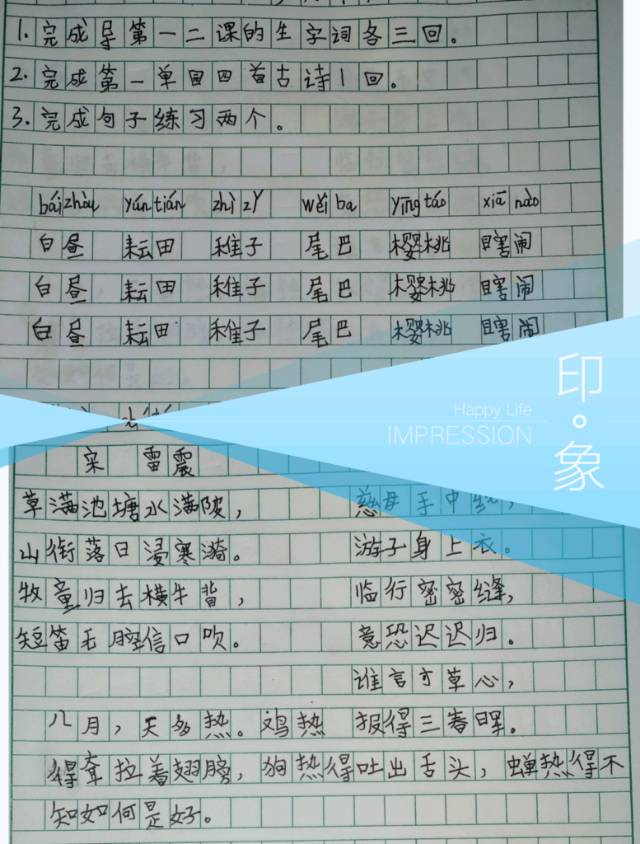 1.完成导第一二课的生字词各三回。
2.完成第一单目四首古诗1回。
3.完成句子练习两个。
báizhòu yúntián zhìzǐ wěi ba yīngtáo xiā nào
白昼 耘田 稚子 尾巴 樱桃 瞎闹
白昼 耘田 稚子 尾巴 樱桃 瞎闹
白昼 耘田 稚子 尾巴 樱桃 瞎闹
印·象
Happy Life
IMPRESSION
宋 雷震
草满池塘水满陂，
山衔落日浸寒漪。
牧童归去横牛背，
短笛无腔信口吹。
慈母手中线，
游子身上衣。
临行密密缝，
意恐迟迟归。
谁言寸草心，
报得三春晖。
八月，天多热。鸡热
得耷拉着翅膀，狗热得吐出舌头，蝉热得不
知如何是好。